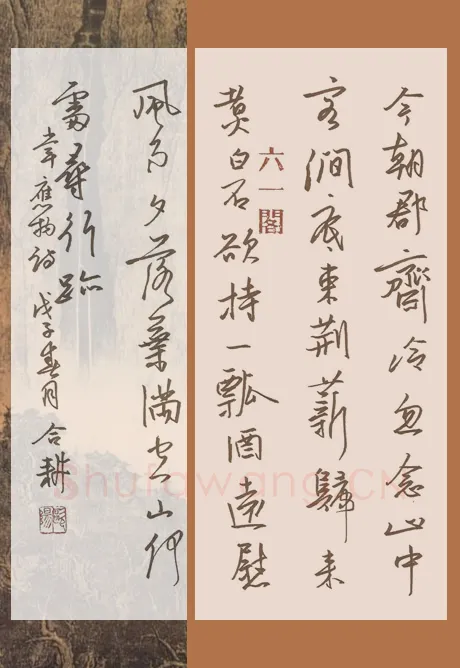 今朝郡齋冷忽念山中
客澗底束荊薪歸来
煮白石欲持一瓢酒遠慰
六一閣
風雨夕落葉滿空山何
處尋行跡
韋應物詩 戊子春月 合耕
Shufawang.CN